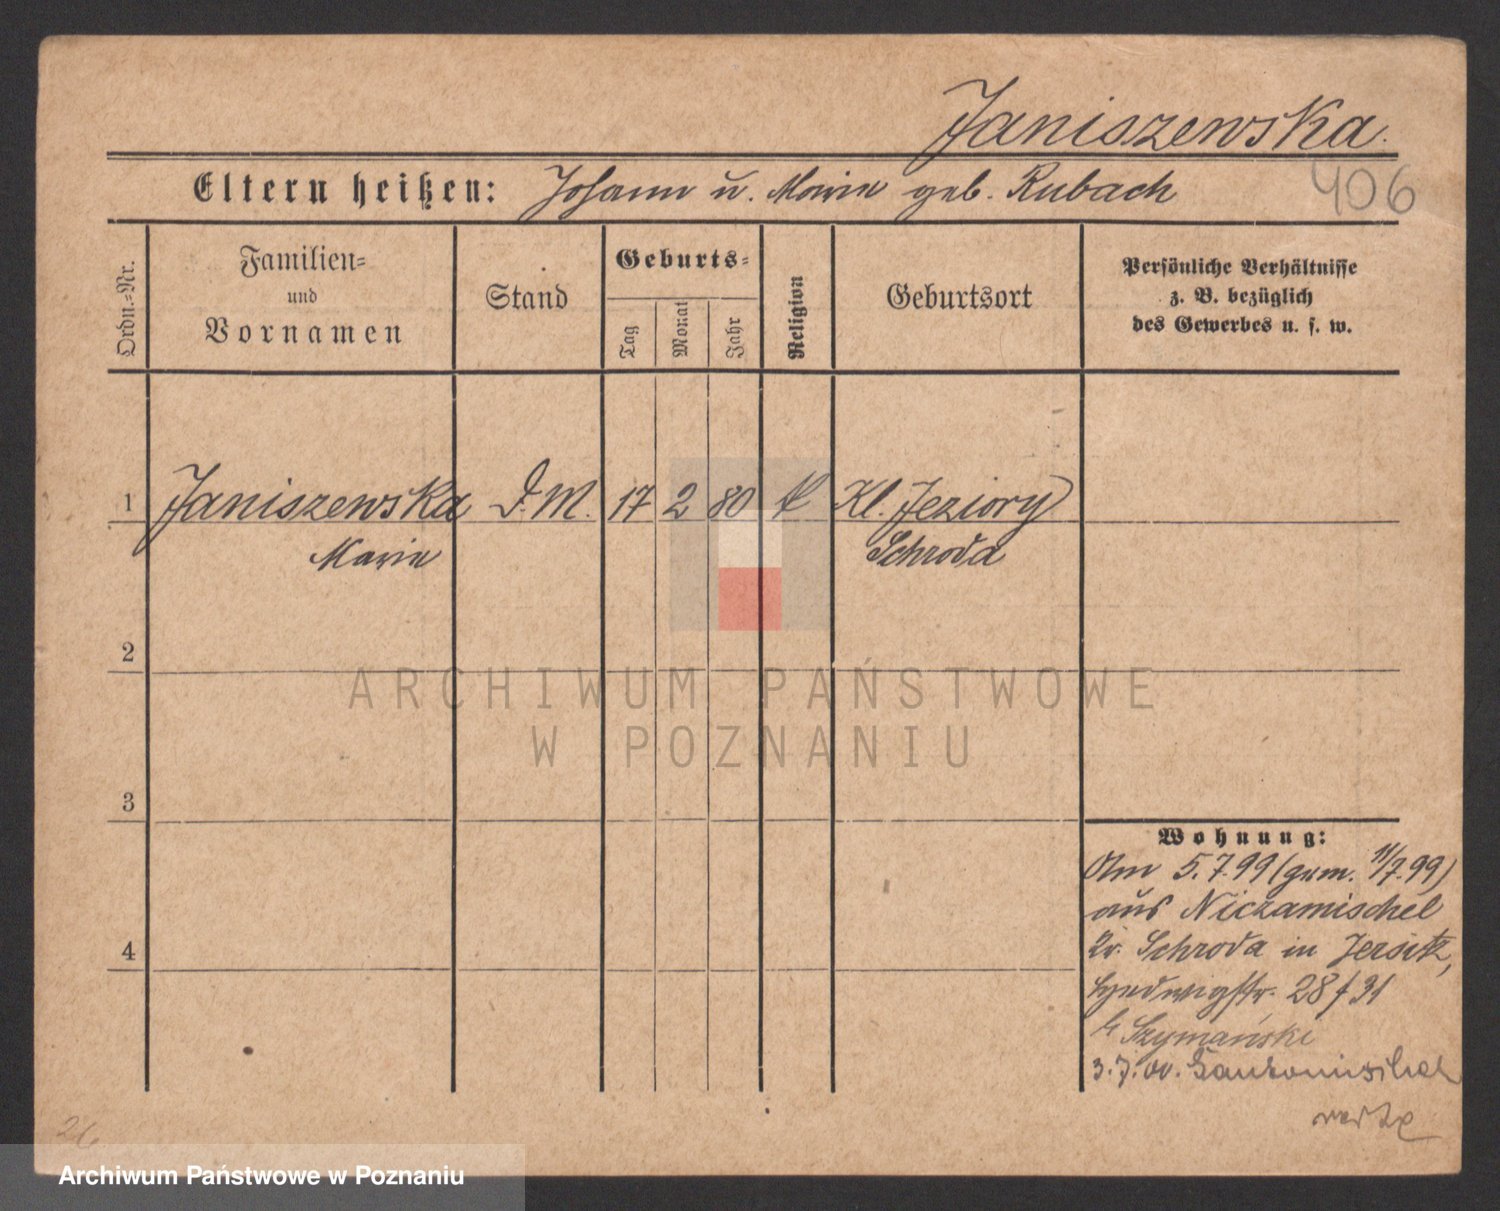 Janiszewska.
Eltern heißen: Johann u. Marie geb. Rubach
406
Ordn.-Nr.
Familien-
und
Vornamen
Stand
Geburts-
Tag
Monat
Jahr
Religion
Geburtsort
Persönliche Verhältnisse
z. B. bezüglich
des Gewerbes u. s. w.
1 Janiszewska D.M. 17 2 80 k Kl. Jeziory
Marie Schroda
2
ARCHIWUM PAŃSTWOWE
W POZNANIU
3
Wohnung:
Am 5.7.99 (gem. 11/7.99)
aus Niczamischel
Kr. Schroda in Jersitz,
Hedwigstr. 28/31
4
b Szymański
3.7.00.
26
Archiwum Państwowe w Poznaniu